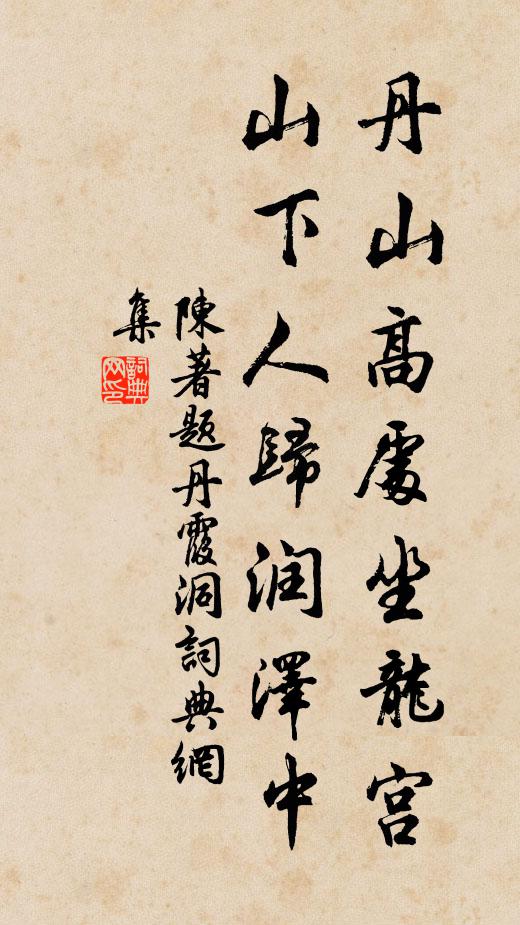 丹山高處坐龍宮
山下人歸润澤中
陳著题丹霞洞詞典網
集
詞典網印